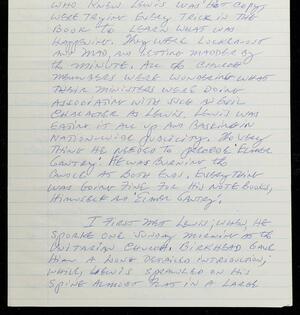 WHO KNEW LEWIS WAS HOT COPY
WERE TRYING EVERY TRICK IN THE
BOOK TO LEARN WHAT WAS
HAPPENING. THEY WERE
AND MAD, AND GETTING MADDER BY
THE MINUTE. ALL THE CHURCH
MEMBERS WERE WONDERING WHAT
THEIR MINISTERS WERE DOING
ASSOCIATING WITH SUCH AN EVIL
CHARACTER AS LEWIS. LEWIS WAS
EATING IT ALL UP AND BASKING IN
NATIONWIDE PUBLICITY. THE VERY
THING HE NEEDED TO "ELMER
GANTRY". HE WAS BURNING THE
CANDLE AT BOTH ENDS. EVERYTHING
WAS GOING FINE FOR HIS NOTE BOOKS,
HIMSELF AND "ELMER GANTRY".
I FIRST MET LEWIS, WHEN HE
SPOKE ONE SUNDAY MORNING AT THE
UNITARIAN CHURCH. BIRKHEAD GAVE
HIM A LONG DETAILED INTRODUCTION,
WHILE LEWIS SPRAWLED ON HIS
SPINE ALMOST FLAT IN A LARGE